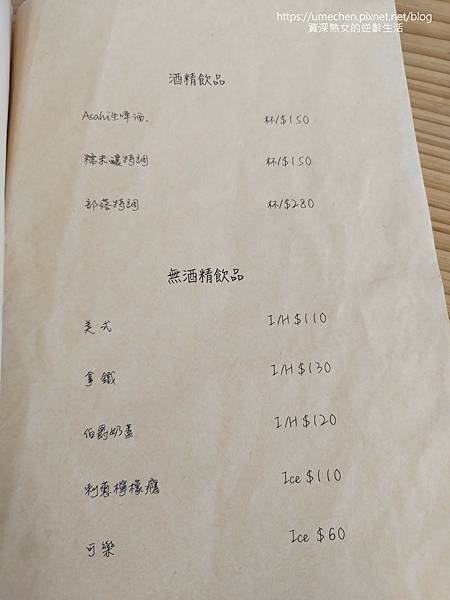 https://umechen.pixnet.net/blog
資深熟女的逆齡生活
酒精飲品
Asahi生啤酒. 杯/$150
糯米釀特調 杯/$150
部落特調 杯/$280
無酒精飲品
美式 I/H $110
拿鐵 I/H $130
伯爵奶蓋 I/H $120
刺蔥檸檬 Ice $110
可樂 Ice $60